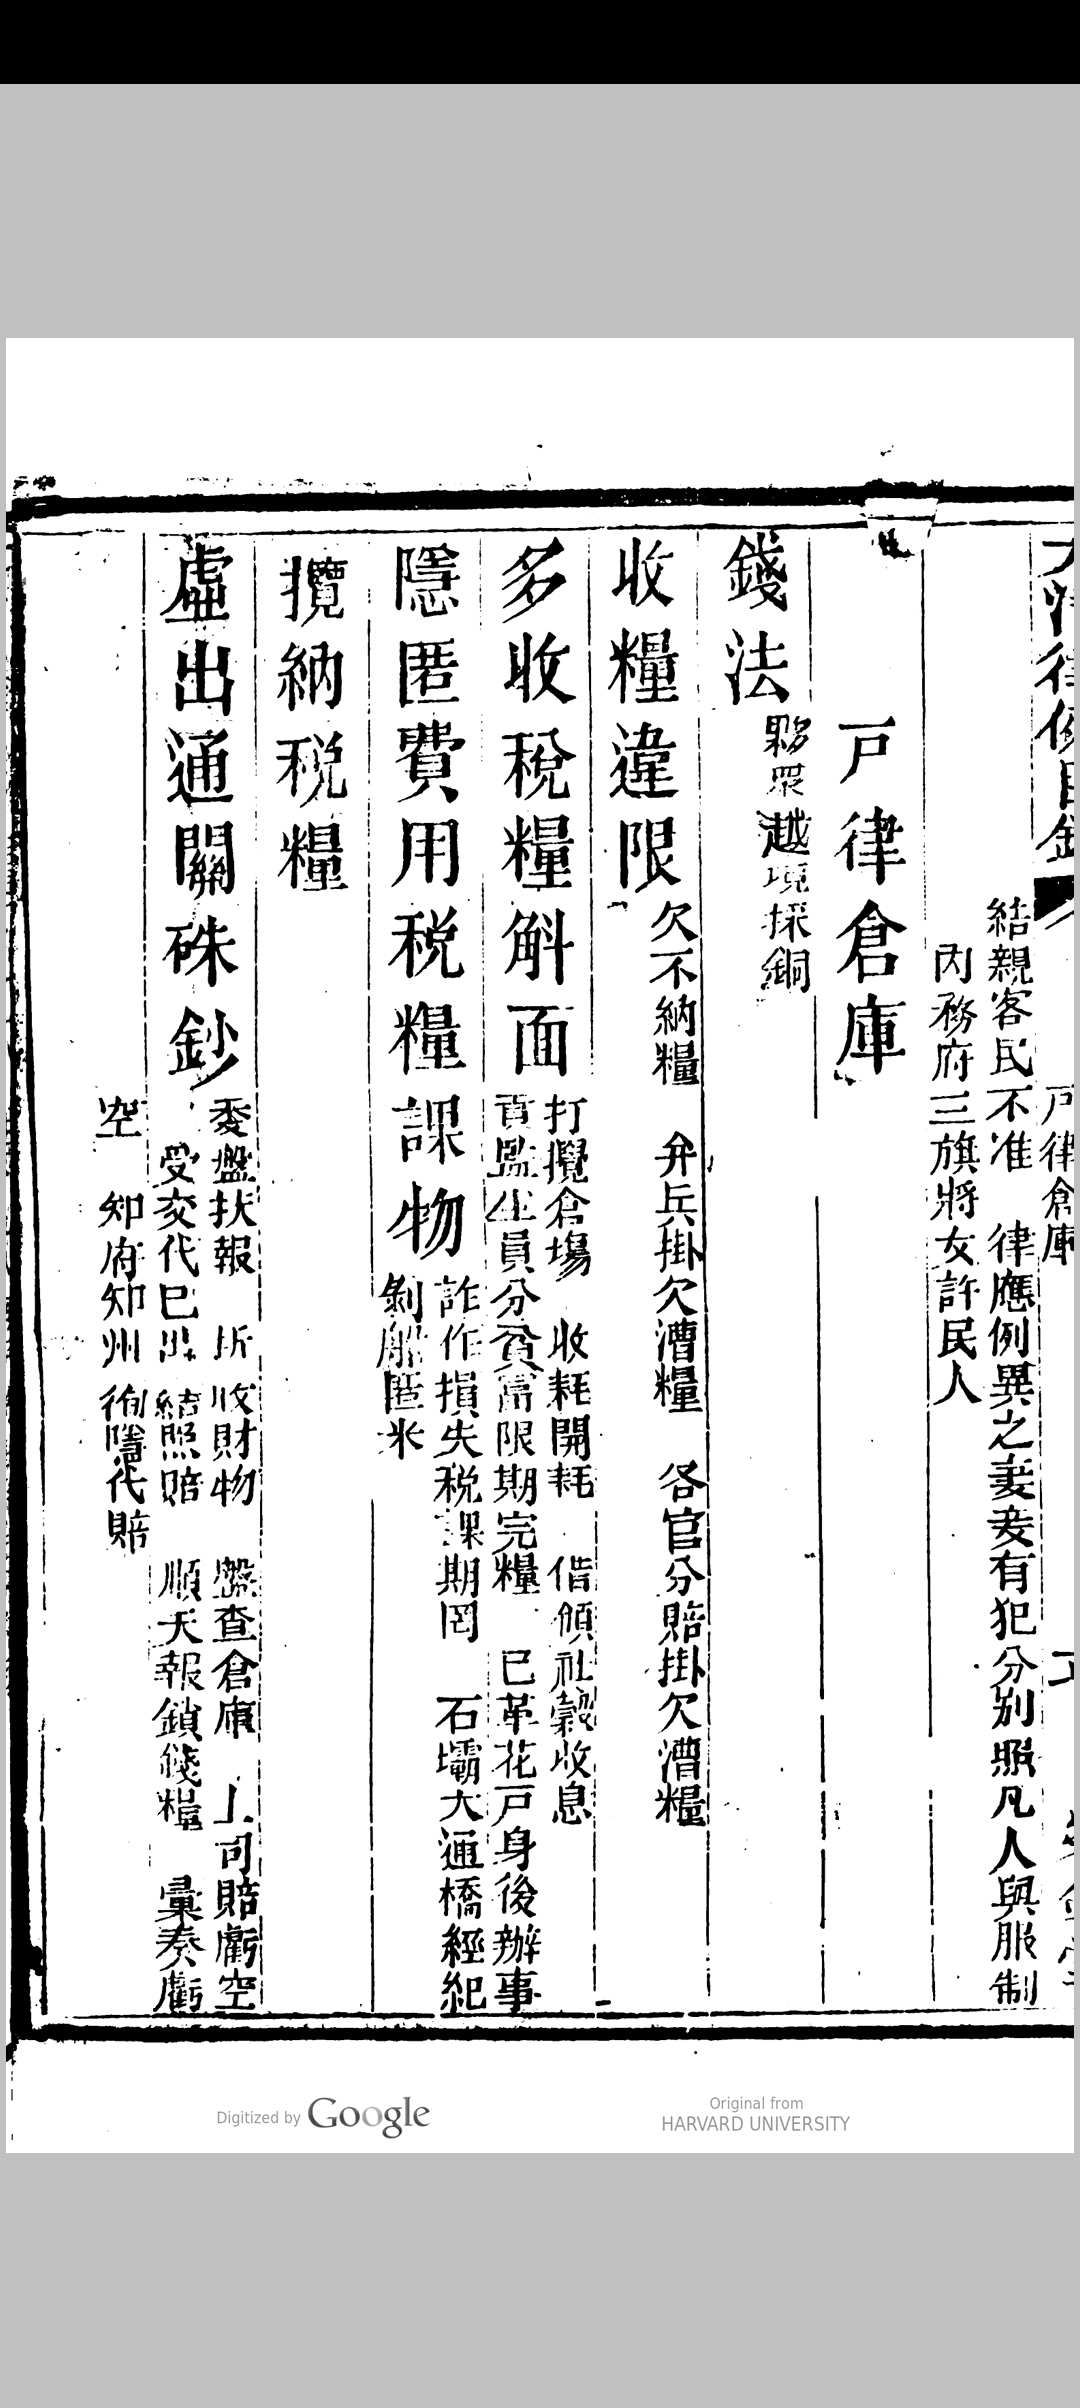 大清律例目錄
戸律倉庫
結親客民不准 律應例異之妻妾有犯分別照凡人與服制
內務府三旗將女許民人
戸律倉庫
錢法
夥眾越境採銅
收糧違限
欠不納糧 弁兵掛欠漕糧 各官分賠掛欠漕糧
多收稅糧斛面
打攪倉塲 收耗開耗 借領社穀收息
貢監生員分貧富限期完糧 已革花戸身後辦事
隱匿費用税糧課物
詐作損失税課期罔 石壩大通橋經紀
剝船匿米
攬納税糧
虛出通關硃鈔
委盤扶報 折收財物 盤查倉庫 上司賠虧空
受交代已出結照賠 順天報銷錢糧 彙奏虧
空 知府知州徇隱代賠
Digitized by Google
Original from
HARVARD UNIVERSITY